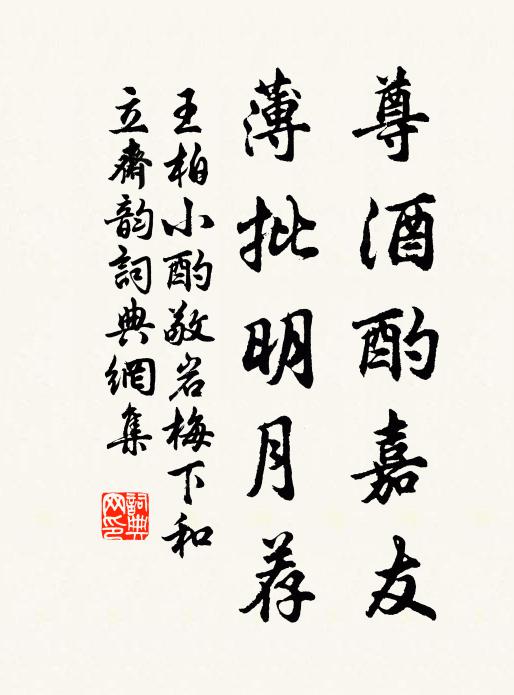 尊酒酌嘉友
薄批明月荐
王柏小酌敬岩梅下和
立斋韵詞典網集
詞典网印